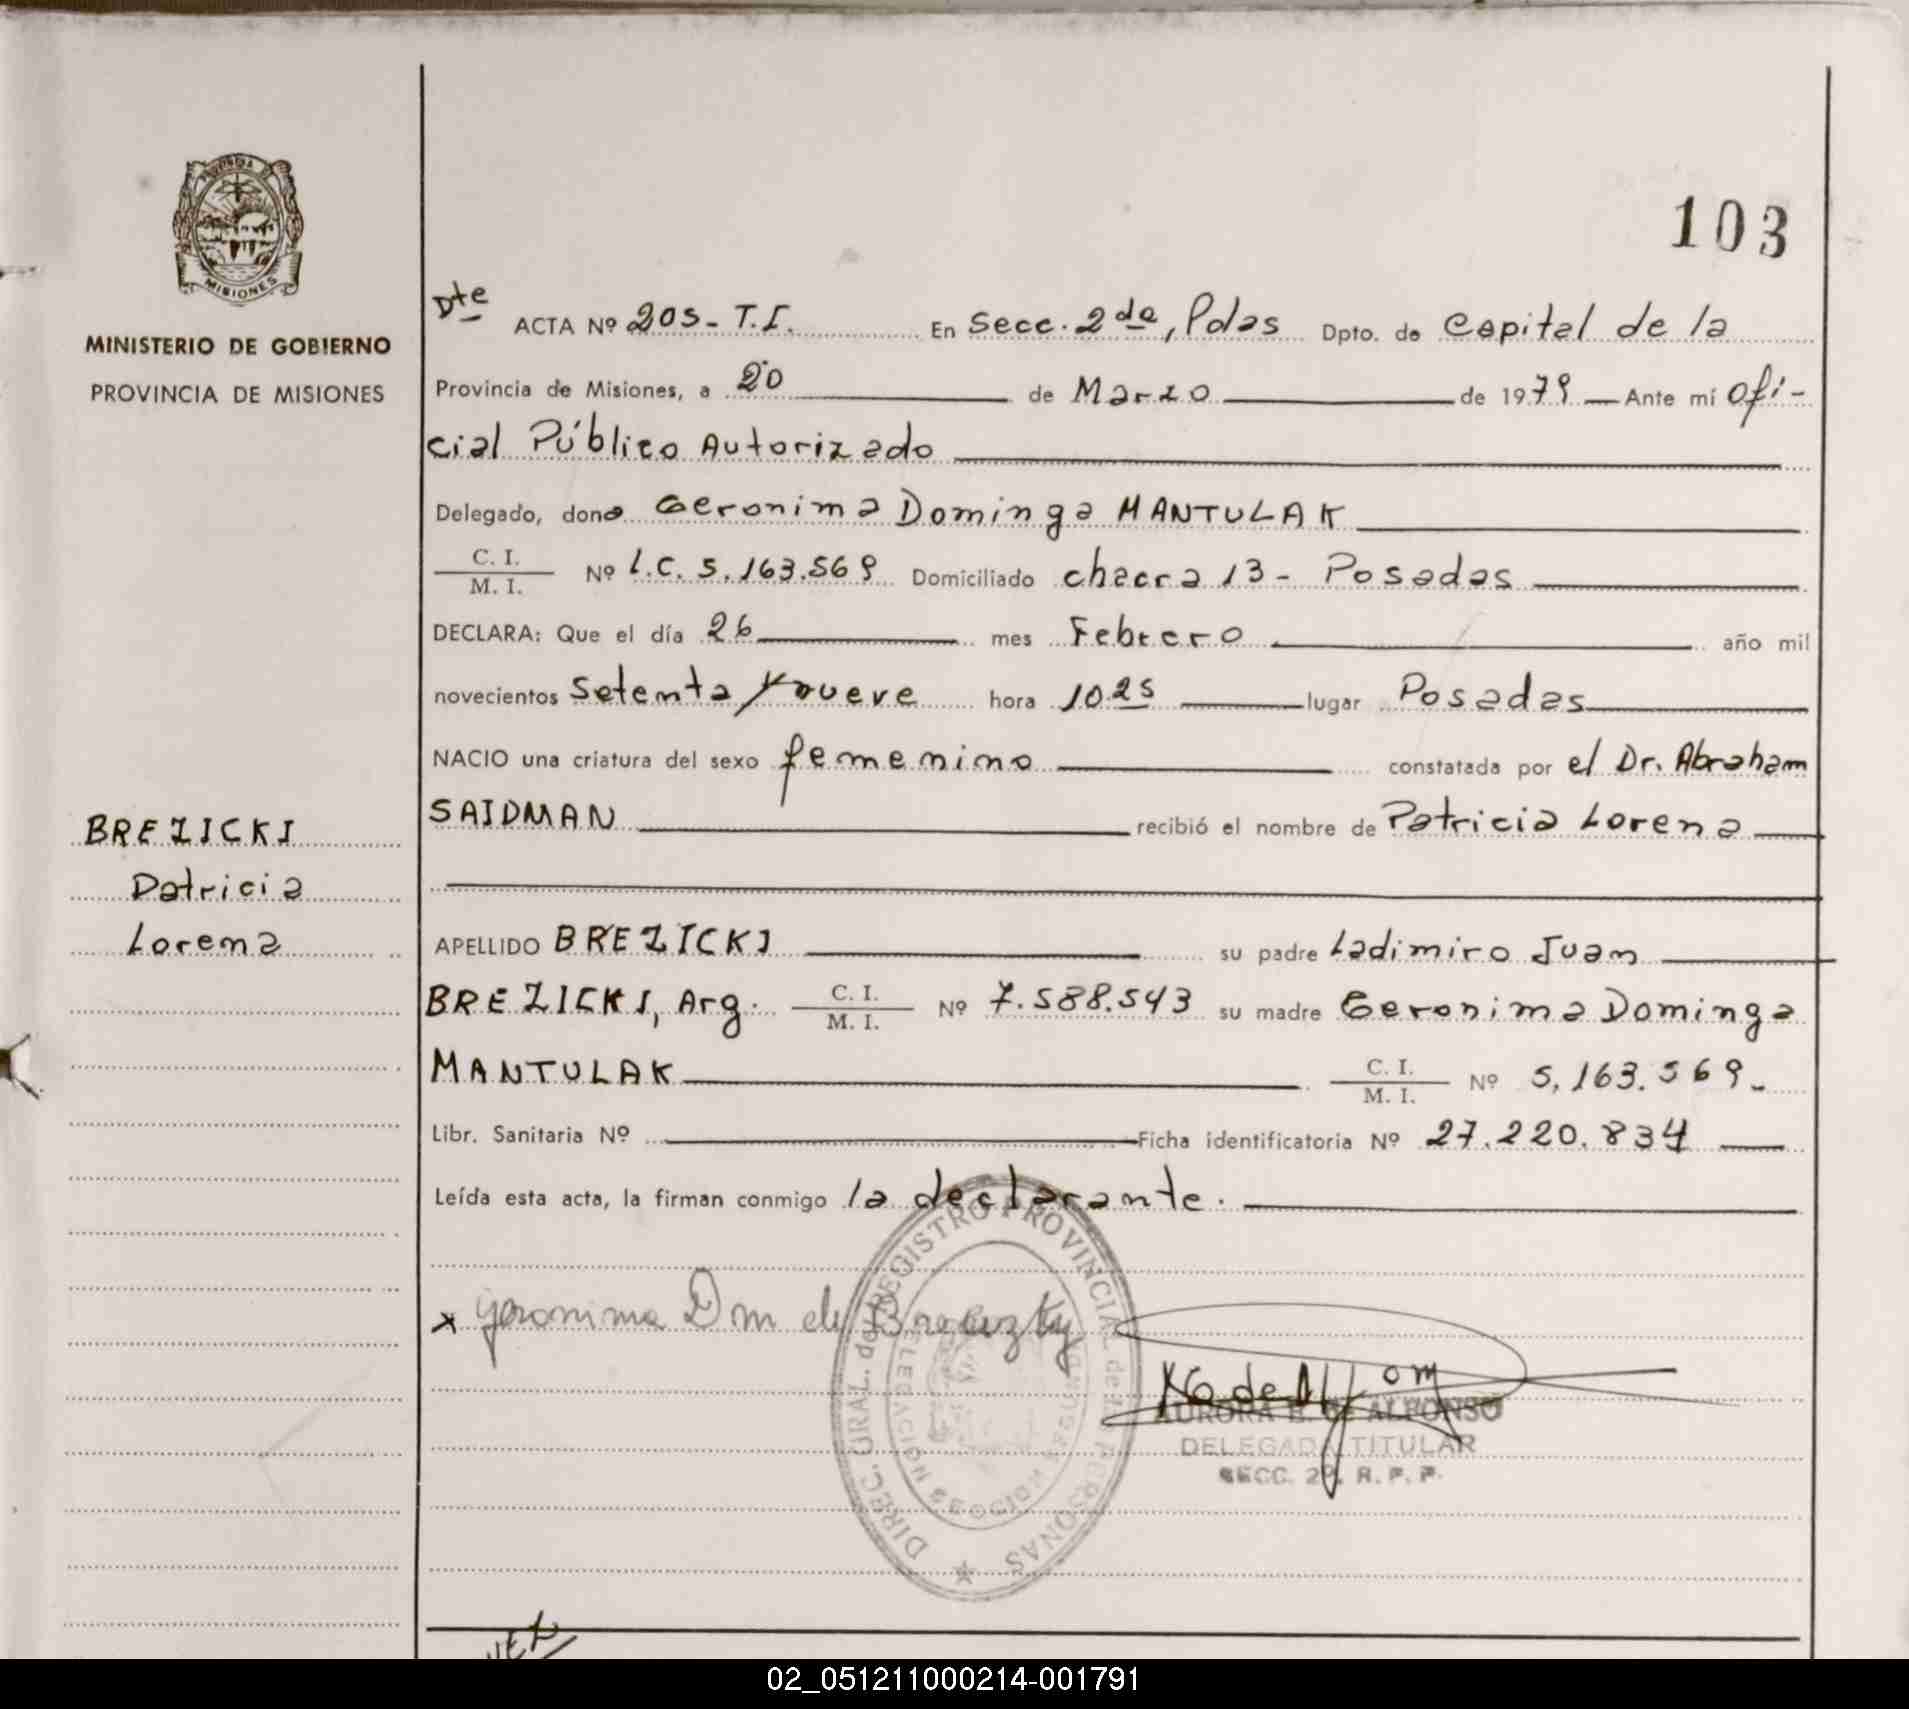 PROVINCIA DE
MISIONES
MINISTERIO DE GOBIERNO
PROVINCIA DE MISIONES
BREZICKI
Patricia
Lorena
103
Dte ACTA Nº 205- T.I. En Secc. 2da, Pdas Dpto. de Capital de la
Provincia de Misiones, a 20 de Marzo de 1979 Ante mí Ofi-
cial Público Autorizado
Delegado, dona Geronima Dominga MANTULAK
C. I.
M. I. Nº L.C. 5.163.569 Domiciliado chacra 13 - Posadas
DECLARA: Que el día 26 mes Febrero año mil
novecientos Setenta y nueve hora 10.25 lugar Posadas
NACIO una criatura del sexo femenino constatada por el Dr. Abraham
SAIDMAN recibió el nombre de Patricia Lorena
APELLIDO BREZICKI su padre Ladimiro Juan
BREZICKI, Arg. C. I.
M. I. Nº 7.588.543 su madre Geronima Dominga
MANTULAK C. I.
M. I. Nº 5.163.569.
Libr. Sanitaria Nº Ficha identificatoria Nº 27.220.834
Leída esta acta, la firman conmigo la declarante.
x Geronima D m de
DIREC. GRAL. del REGISTRO PROVINCIAL de las PERSONAS
DELEGACION
AURORA E. de ALFONSO
DELEGADA TITULAR
SECC. 2ª. R. P. P.
02_051211000214-001791